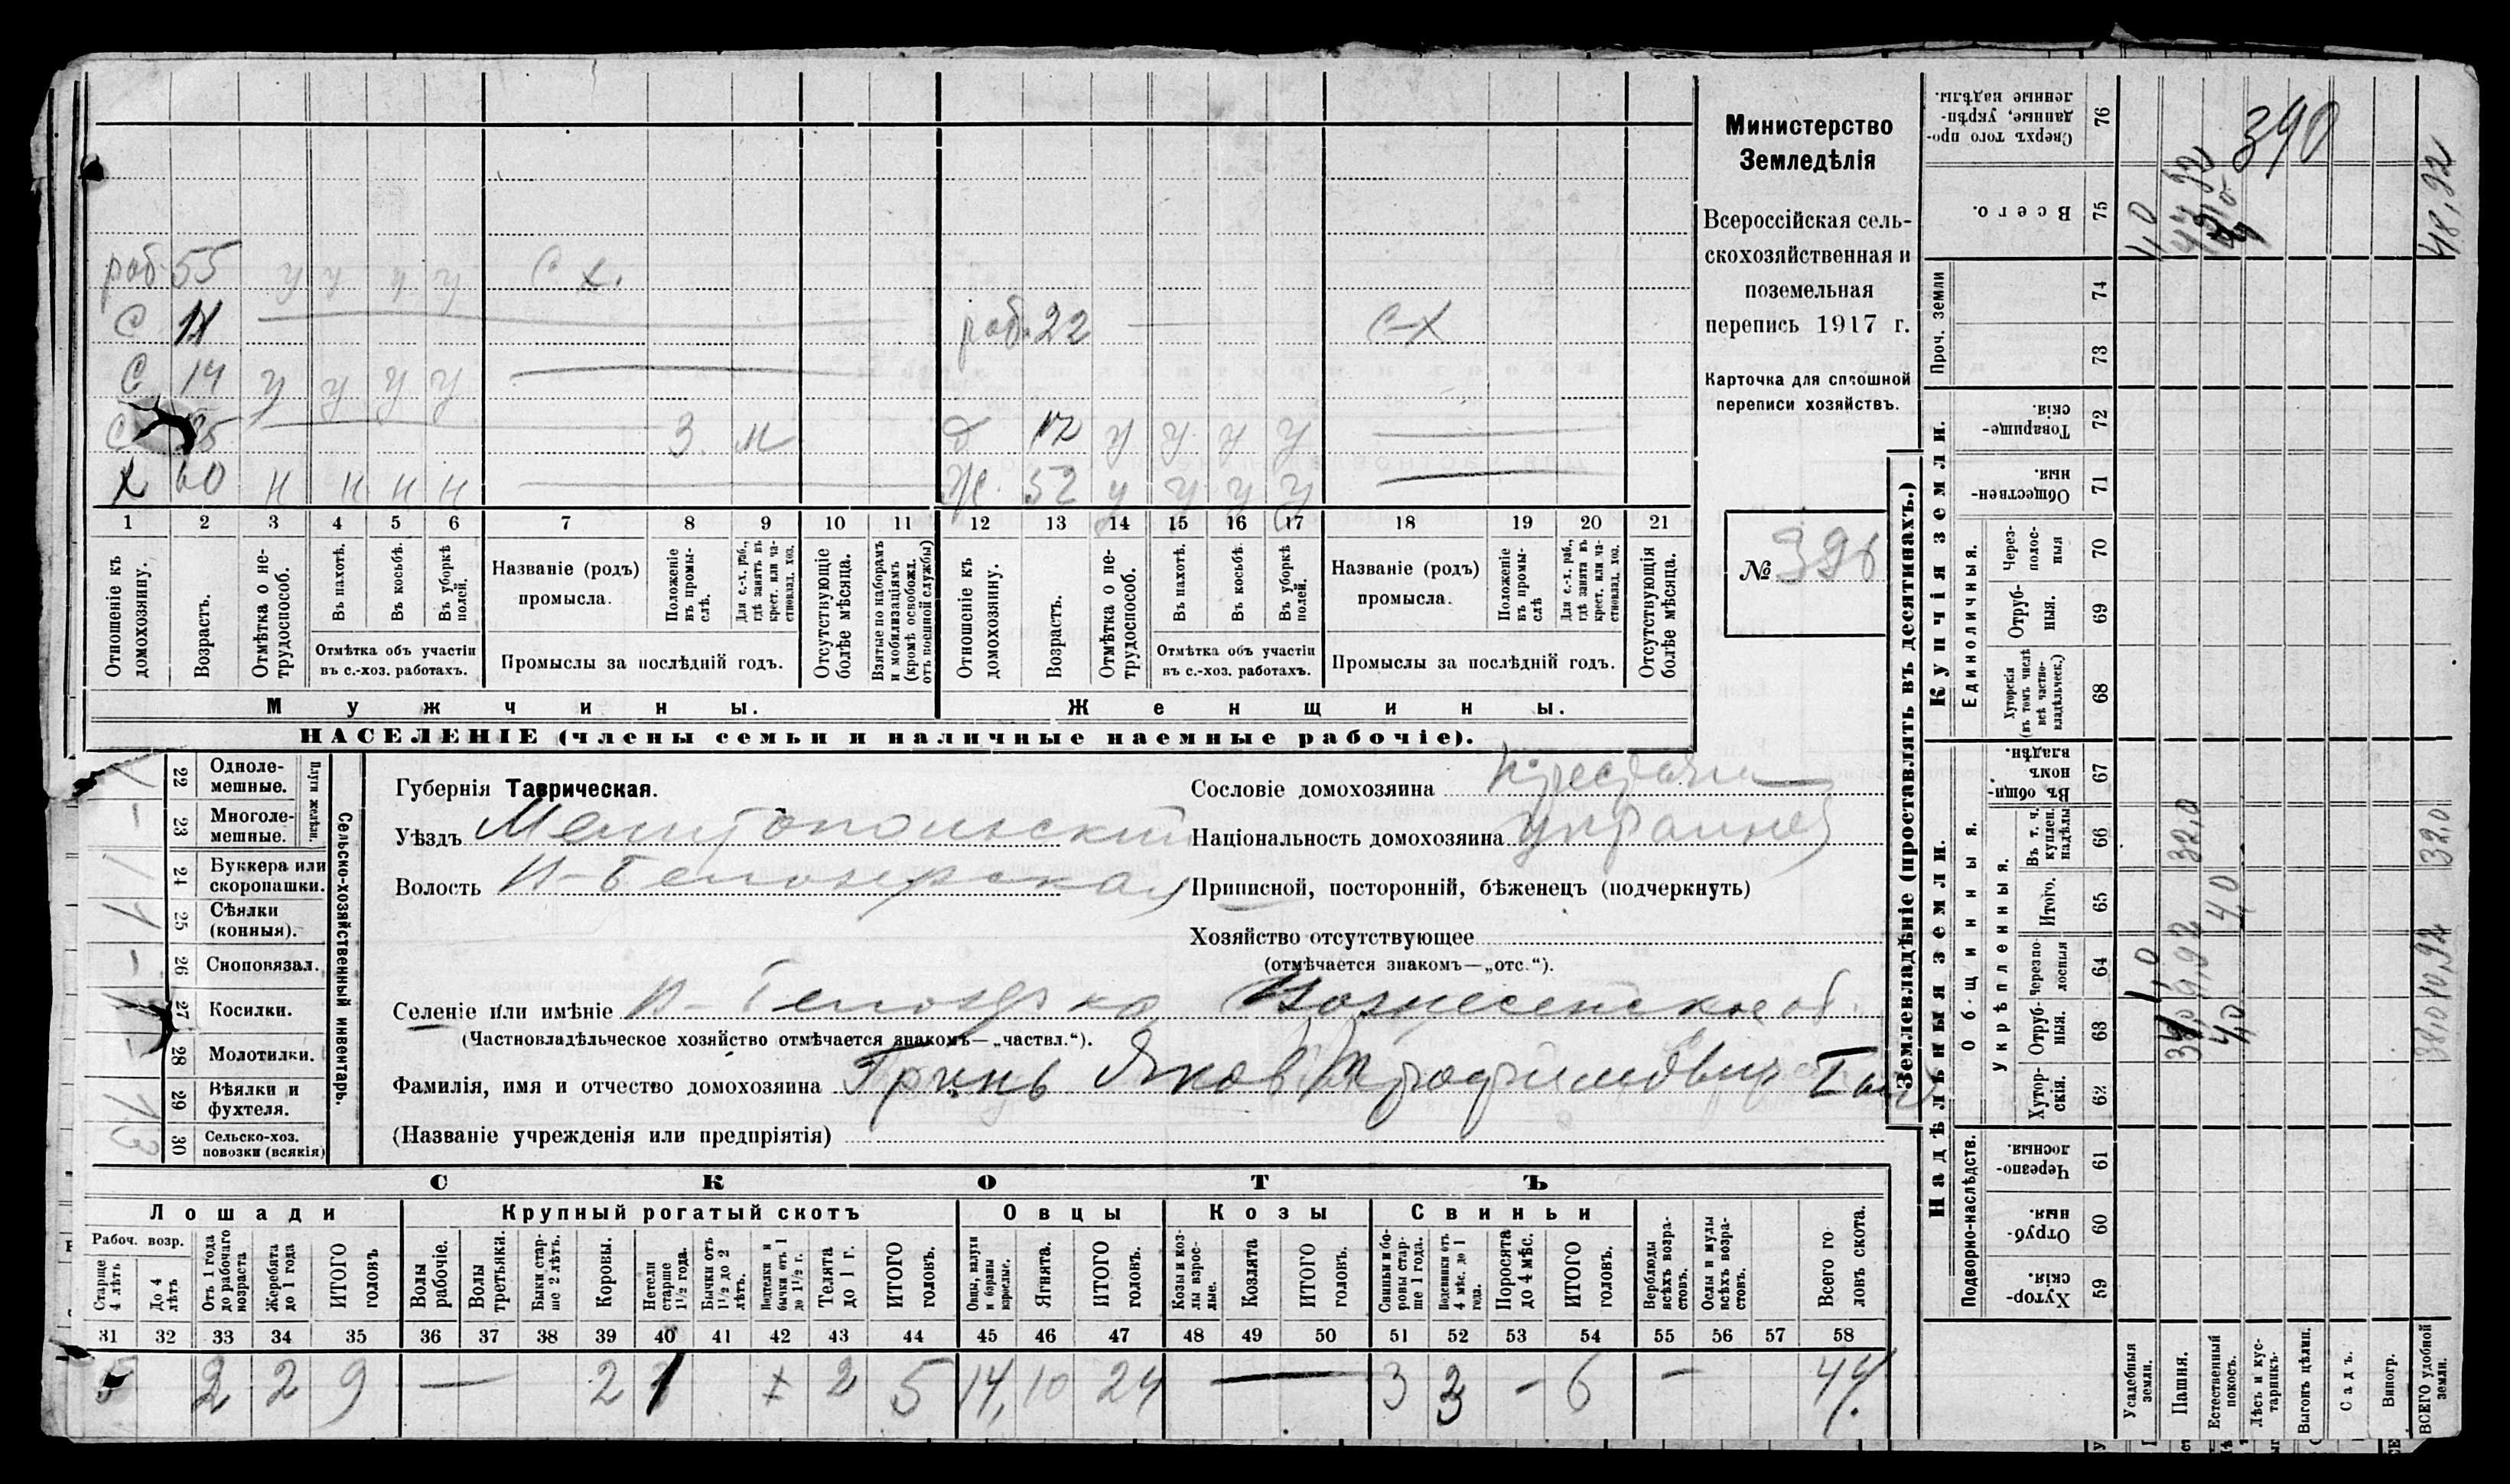 раб. 55 у у у у с х.
с 11 раб. 22 с-х
с 14 у у у у
с З. н д 12 у у у у
х 60 н н н н ж. 52 у у у у
1 2 3 4 5 6 7 8 9 10 11 12 13 14 15 16 17 18 19 20 21
Отношеніе къ домохозяину.
Возрастъ.
Отмѣтка о не-трудоспособ.
Въ пахотѣ.
Въ косьбѣ.
Въ уборкѣ полей.
Отмѣтка объ участіи
въ с.-хоз. работахъ.
Названіе (родъ)
промысла.
Положеніе въ промы-слѣ.
Для с.-х. раб., гдѣ занятъ въ крест. или ча-стновлад. хоз.
Промыслы за послѣдній годъ.
Отсутствующіе болѣе мѣсяца.
Взятые по наборамъ и мобилизаціямъ (кромѣ освобожд. отъ военной службы)
Отношеніе къ домохозяину.
Возрастъ.
Отмѣтка о не-трудоспособ.
Въ пахотѣ.
Въ косьбѣ.
Въ уборкѣ полей.
Отмѣтка объ участіи
въ с.-хоз. работахъ.
Названіе (родъ)
промысла.
Положеніе въ промы-слѣ
Для с.-х. раб., гдѣ занята въ крест. или ча-стновлад. хоз.
Промыслы за послѣдній годъ.
Отсутствующія болѣе мѣсяца.
Мужчины. Женщины.
НАСЕЛЕНІЕ (члены семьи и наличные наемные рабочіе).
Министерство
Земледѣлія
Всероссійская сель-
скохозяйственная и
поземельная
перепись 1917 г.
Карточка для сплошной
переписи хозяйствъ.
№ 396
Сельско-хозяйственный инвентарь.
Плуги желѣзн.
22 Одноле-мешные.
23 Многоле-мешные.
24 Буккера или скоропашки.
25 Сѣялки (конныя).
26 Сноповязал.
27 Косилки.
28 Молотилки.
29 Вѣялки и фухтеля.
30 Сельско-хоз. повозки (всякія)
Губернія Таврическая.
Уѣздъ Мелитопольский
Волость Н-Белозерская
Сословіе домохозяина
Національность домохозяина украинец
Приписной, посторонній, бѣженецъ (подчеркнуть)
Хозяйство отсутствующее
(отмѣчается знакомъ—„отс.“).
Селеніе или имѣніе Н-Белозерка Вознесенское об.
(Частновладѣльческое хозяйство отмѣчается знакомъ—„частвл.“).
Фамилія, имя и отчество домохозяина Гринь Яков Трофимович
(Названіе учрежденія или предпріятія)
СКОТЪ
Лошади Крупный рогатый скотъ Овцы Козы Свиньи
Рабоч. возр.
Старше 4 лѣтъ
До 4 лѣтъ
Отъ 1 года до рабочаго возраста
Жеребята до 1 года
ИТОГО головъ
Волы рабочіе.
Волы третьяки.
Быки стар-ше 2 лѣтъ.
Коровы.
Нетели старше 1½ года.
Бычки отъ 1½ до 2 лѣтъ.
Подтелки и бычки отъ 1 до 1½ г.
Телята до 1 г.
ИТОГО головъ.
Овцы, валухи и бараны взрослые.
Ягнята.
ИТОГО головъ.
Козы и коз-лы взрос-лые.
Козлята
ИТОГО головъ.
Свиньи и бо-ровы стар-ше 1 года.
Подсвинки отъ 4 мѣс. до 1 года.
Поросята до 4 мѣс.
ИТОГО головъ.
Верблюды всѣхъ возра-стовъ.
Ослы и мулы всѣхъ возра-стовъ.
Всего го-ловъ скота.
31 32 33 34 35 36 37 38 39 40 41 42 43 44 45 46 47 48 49 50 51 52 53 54 55 56 57 58
5 2 2 9 — 2 1 2 5 14, 10 24 — 3 3 - 6 - 44.
Землевладѣніе (проставлять въ десятинахъ.)
Купчія земли.
Надѣльныя земли.
Сверхъ того про-данные, укрѣп-ленные надѣлы. 76
Всего. 75
Проч. земли 74 73
Товарище-скія. 72
Обществен-ныя. 71
Единоличныя.
Через-полос-ныя 70
Отруб-ныя. 69
Хуторскія (въ томъ числѣ всѣ частно-владѣльческ.) 68
Общинныя.
Въ общин-номъ владѣн. 67
Укрѣпленныя.
Въ т. ч. куплен. надѣлы 66
Итого. 65
Черезпо-лосныя 64
Отруб-ныя. 63
Хутор-скія. 62
Подворно-наслѣдств.
Черезпо-лосныя. 61
Отруб-ныя. 60
Хутор-скія. 59
Усадебныя земли.
Пашня.
Естественный покосъ.
Лѣсъ и кус-тарникъ.
Выгонъ цѣлин.
Садъ.
Виногр.
ВСЕГО удобной земли.
390
1,0
48,92
32,0
4,0
32,0
1,0
9,92
4,0
38,0
10,92